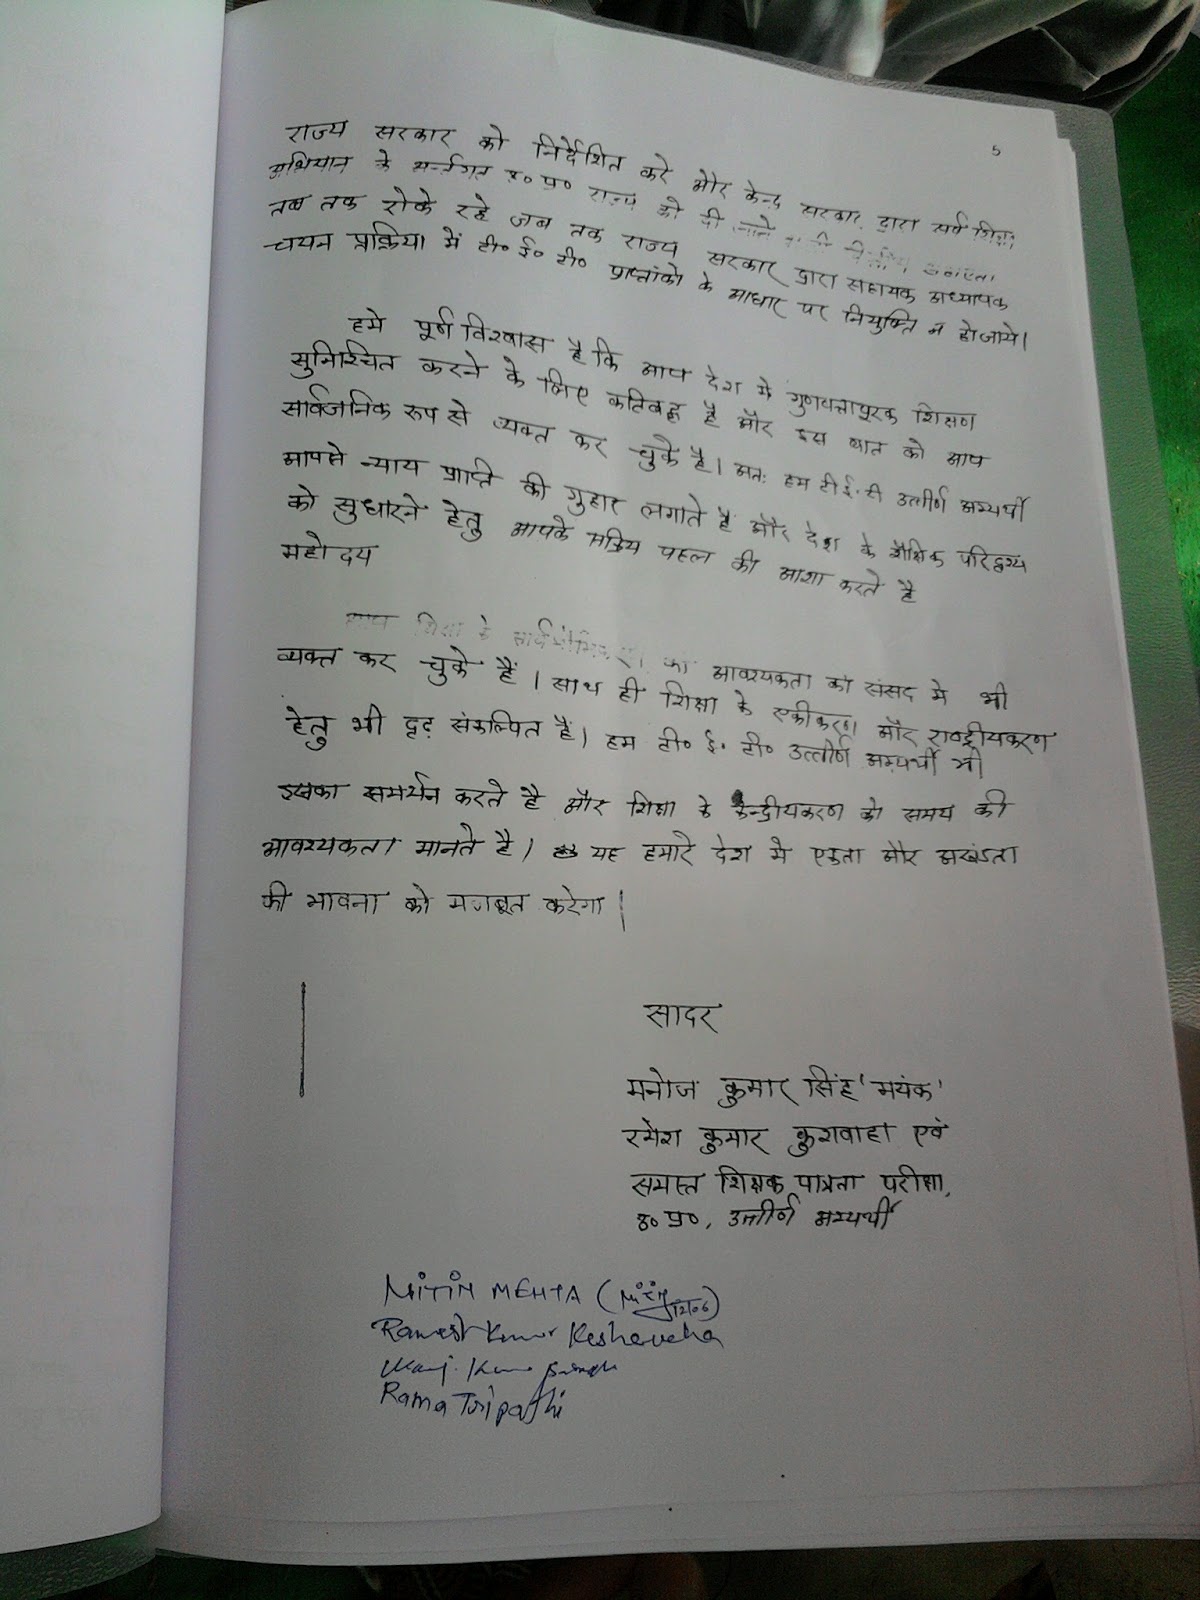 5
राज्य सरकार को निर्देशित करे और केन्द्र सरकार द्वारा सर्व शिक्षा
अभियान के अर्न्तगत उ० प्र० राज्य को दी जाने वाली वित्तीय सहायता
तब तक रोके रहे जब तक राज्य सरकार द्वारा सहायक अध्यापक
चयन प्रक्रिया में टी० ई० टी० प्राप्तांको के आधार पर नियुक्ति न हो जाये।
हमे पूर्ण विश्वास है कि आप देश मे गुणवत्तापूरक शिक्षण
सुनिश्चित करने के लिए कतिबद्ध है और इस बात को आप
सार्वजनिक रूप से व्यक्त कर चुके है। अतः हम टी.ई.टी उत्तीर्ण अभ्यर्थी
आपसे न्याय प्राप्ति की गुहार लगाते हैं और देश के शैक्षिक परिदृश्य
को सुधारने हेतु आपके सक्रिय पहल की आशा करते है
महोदय
आप शिक्षा के सार्वभौमिकरण की आवश्यकता को संसद मे भी
व्यक्त कर चुके हैं। साथ ही शिक्षा के एकीकरण और राष्ट्रीयकरण
हेतु भी दृढ़ संकल्पित हैं। हम टी० ई० टी० उत्तीर्ण अभ्यर्थी भी
इसका समर्थन करते है और शिक्षा के केन्द्रीयकरण को समय की
आवश्यकता मानते है। यह हमारे देश मे एकता और अखंडता
की भावना को मजबूत करेगा।
सादर
मनोज कुमार सिंह 'मयंक'
रमेश कुमार कुशवाहा एवं
समस्त शिक्षक पात्रता परीक्षा,
उ० प्र०, उत्तीर्ण अभ्यर्थी
NITIN MEHTA (Nitin 12/06)
Ramesh Kumar Keshaveha
Manoj Kumar Singh
Rama Tripathi